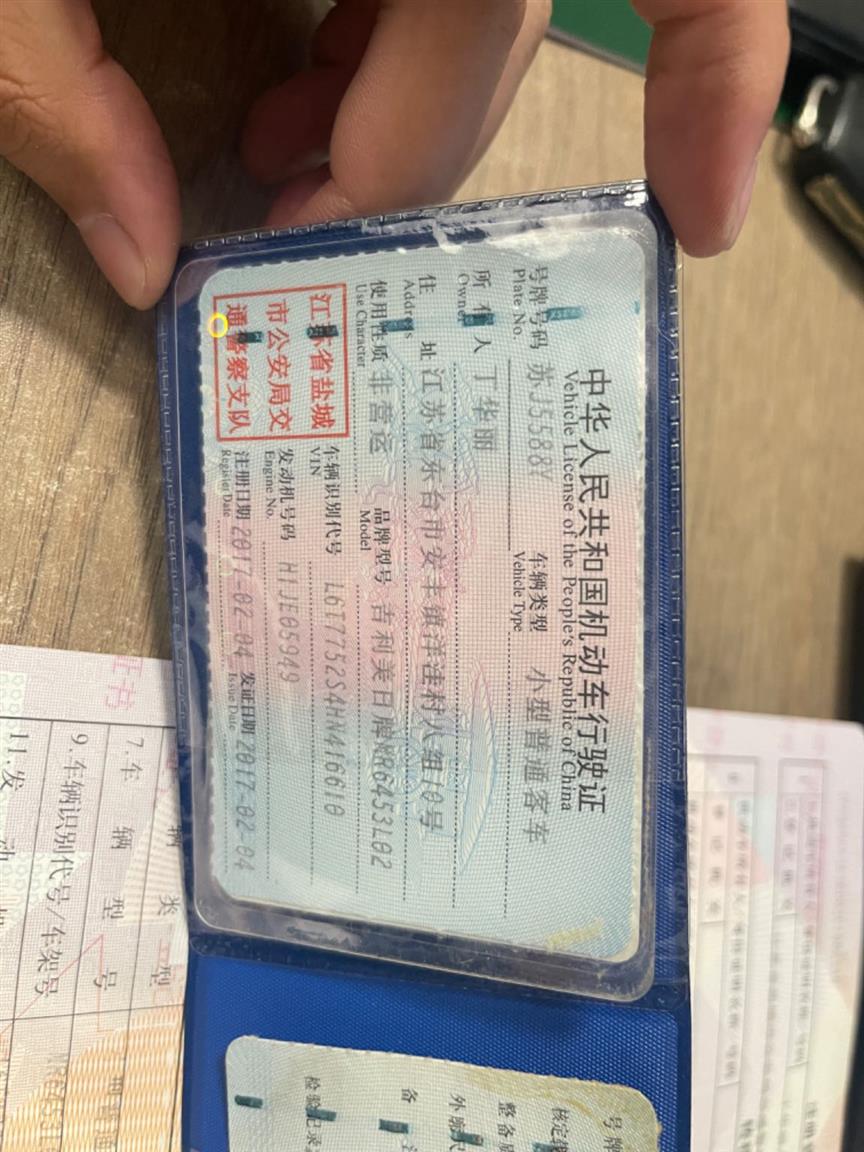 中华人民共和国机动车行驶证
Vehicle License of the People's Republic of China
号牌号码 苏J5588Y 车辆类型 小型普通客车
Plate No. Vehicle Type
所有人 丁华丽
Owner
住址 江苏省东台市安丰镇洋洼村八组10号
Address
使用性质 非营运 品牌型号 吉利美日牌MR6453L02
Use Character Model
江苏省盐城
市公安局交
通警察支队
车辆识别代号 L6T7752S4HN416610
VIN
发动机号码 H1JE05949
Engine No.
注册日期 2017-02-04 发证日期 2017-02-04
Register Date Issue Date
号牌
核定载
整备质
外廓尺
备
检验记录
证书
7.车辆型号
9.车辆识别代号/车架号
11.发动机